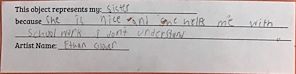 This object represents my: sister
because She is nice and she help me with
school work I dont understand
Artist Name: Ethan